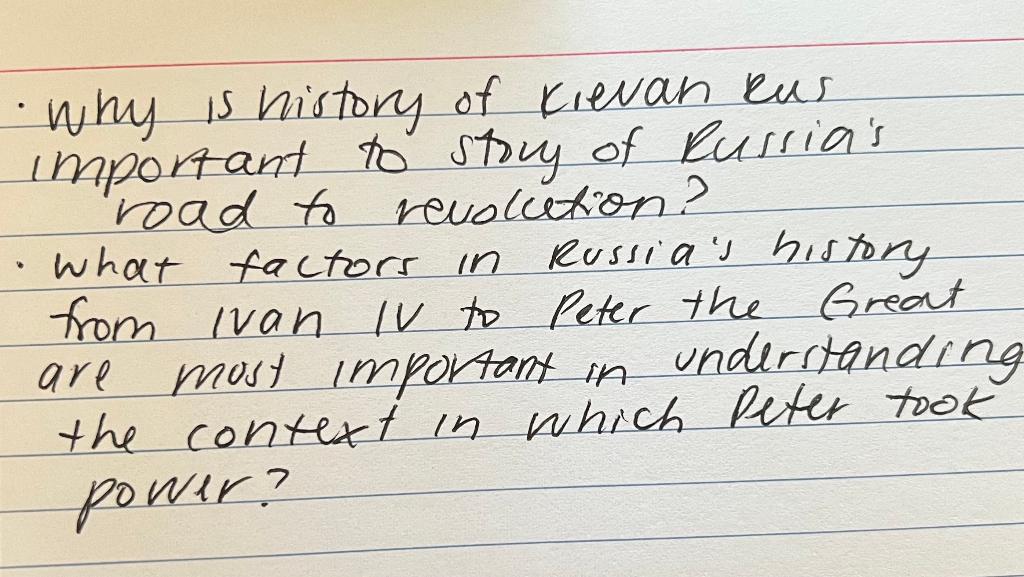 · Why is history of Kievan Rus
important to story of Russia's
road to revolution?
· What factors in Russia's history
from Ivan IV to Peter the Great
are most important in understanding
the context in which Peter took
power?